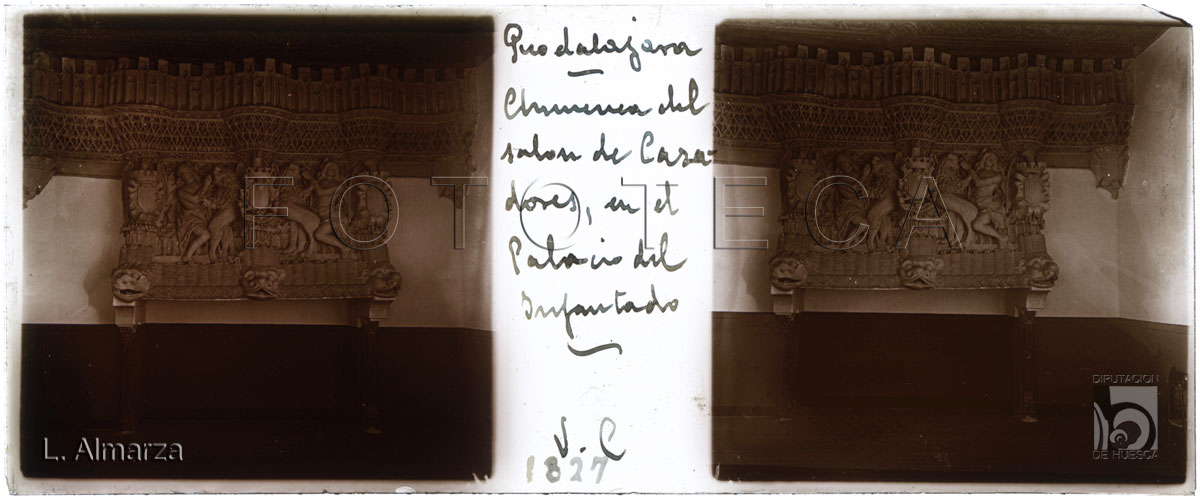 Guadalajara
Chimenea del
salon de Caza-
dores, en el
Palacio del
Infantado
V. C
1827
FOTOTECA
L. Almarza
DIPUTACION
DE HUESCA